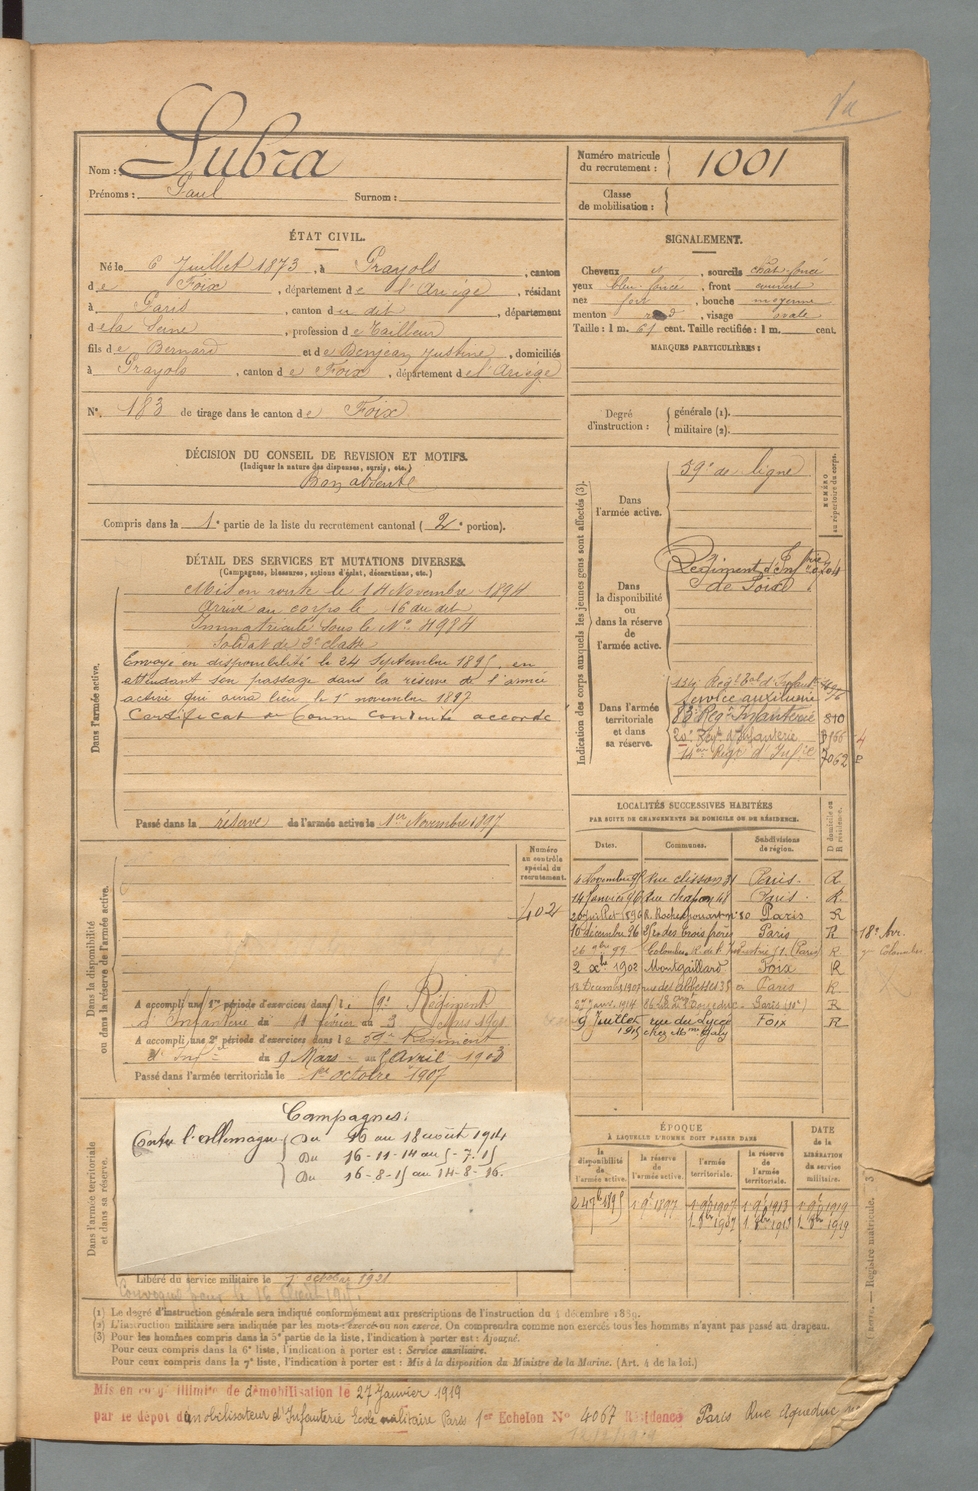 Nom : Lubra
Prénoms : Paul Surnom :
Numéro matricule du recrutement : 1001
Classe de mobilisation :
ÉTAT CIVIL.
Né le 6 Juillet 1873, à Prayols, canton
de Foix, département de l'Ariège, résidant
à Paris, canton du dit, département
de la Seine, profession de Tailleur
fils de Bernard et de Denjean Justine, domiciliés
à Prayols, canton de Foix, département de l'Ariège
N° 183 de tirage dans le canton de Foix
SIGNALEMENT.
Cheveux et, sourcils chât. foncé
yeux bleu foncé, front couvert
nez fort, bouche moyenne
menton rond, visage ovale
Taille : 1 m. 61 cent. Taille rectifiée : 1 m. cent.
MARQUES PARTICULIÈRES :
Degré d'instruction : générale (1).
militaire (2).
DÉCISION DU CONSEIL DE REVISION ET MOTIFS.
(Indiquer la nature des dispenses, sursis, etc.)
Bon absent
Compris dans la 1e partie de la liste du recrutement cantonal (2e portion).
DÉTAIL DES SERVICES ET MUTATIONS DIVERSES.
(Campagnes, blessures, actions d'éclat, décorations, etc.)
Dans l'armée active.
Mis en route le 14 Novembre 1894
Arrivé au corps le 16 du dit
Immatriculé sous le No 4984
Soldat de 2e classe
Envoyé en disponibilité le 24 Septembre 1895, en
attendant son passage dans la réserve de l'armée
active qui aura lieu le 1er novembre 1897
Certificat de bonne conduite accordé
Passé dans la réserve de l'armée active le 1er Novembre 1897
Indication des corps auxquels les jeunes gens sont affectés (3).
NUMÉRO au répertoire du corps.
Dans l'armée active.
59e de ligne
Dans la disponibilité ou dans la réserve de l'armée active.
Régiment d'Infrie
de Foix
Dans l'armée territoriale et dans sa réserve.
134e Regt Tal d'Infant
Service auxiliaire
83e Regt Infanterie 810
20e Regt d'Infanterie
14e Regt d'Infie 7062
LOCALITÉS SUCCESSIVES HABITÉES
PAR SUITE DE CHANGEMENTS DE DOMICILE OU DE RÉSIDENCE.
Dates. Communes. Subdivisions de région. D domicile ou R résidence.
4 Novembre 95 Rue clisson 31 Paris R.
14 Janvier 96 Rue chapon 48 Paris R.
20 juillet 1896 R. Rochechouart no 80 Paris R
10 décembre 96 des trois frères Paris R 18e Arr.
26 9bre 99 Colombes R. de l'Industrie 51 (Paris) R
2 Xbre 1902 Montgaillard Foix R
Décembre 1907 rue des abbesses 35 Paris R
27 janv. 1914 Paris R
9 Juillet 1915 rue du Lycée chez Mme Galy Foix R
Dans la disponibilité ou dans la réserve de l'armée active.
Numéro au contrôle spécial du recrutement.
402
A accompli une 1re période d'exercices dans le Régiment
d'Infanterie du février au 3 Mars 1901
A accompli une 2e période d'exercices dans le 59e Régiment
d'Infie du 9 Mars au 5 Avril 1903
Passé dans l'armée territoriale le 1er octobre 1907
Dans l'armée territoriale et dans sa réserve.
Campagnes :
Contre l'allemagne Du 16 au 18 août 1914
Du 16-11-14 au 5-7-15
Du 16-8-15 au 14-8-16.
Libéré du service militaire le 1 octobre 1921
ÉPOQUE
À LAQUELLE L'HOMME DOIT PASSER DANS
la disponibilité de l'armée active. la réserve de l'armée active. l'armée territoriale. la réserve de l'armée territoriale.
DATE de la LIBÉRATION du service militaire.
24 7bre 1895 1 9bre 1897 1 9bre 1907 1 9bre 1913 1 9bre 1919
1 8bre 1907 1 8bre 1913 1 8bre 1919
(1) Le degré d'instruction générale sera indiqué conformément aux prescriptions de l'instruction du 4 décembre 1889.
(2) L'instruction militaire sera indiquée par les mots : exercé ou non exercé. On comprendra comme non exercés tous les hommes n'ayant pas passé au drapeau.
(3) Pour les hommes compris dans la 5e partie de la liste, l'indication à porter est : Ajourné.
Pour ceux compris dans la 6e liste, l'indication à porter est : Service auxiliaire.
Pour ceux compris dans la 7e liste, l'indication à porter est : Mis à la disposition du Ministre de la Marine. (Art. 4 de la loi.)
Registre matricule.
Mis en congé illimité de démobilisation le 27 Janvier 1919
par le dépot démobilisateur d'Infanterie Ecole militaire Paris 1er Echelon No 4067 Résidence Paris Rue Aqueduc